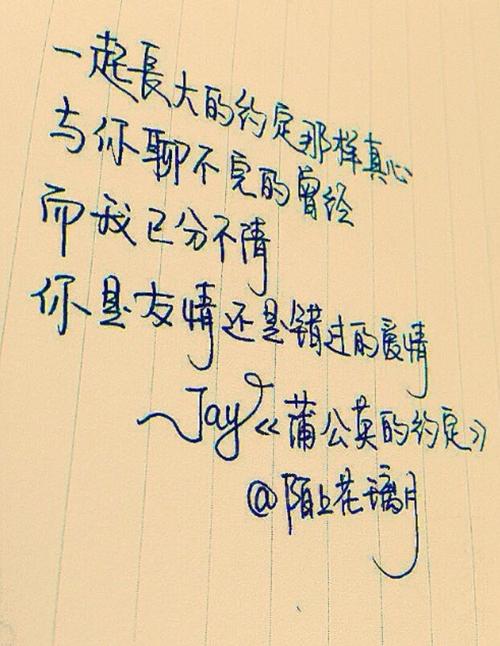 一起長大的约定那样真心
与你聊不完的曾经
而我已分不清
你是友情还是错过的爱情
～Jay《蒲公英的约定》
@陌上花璃月